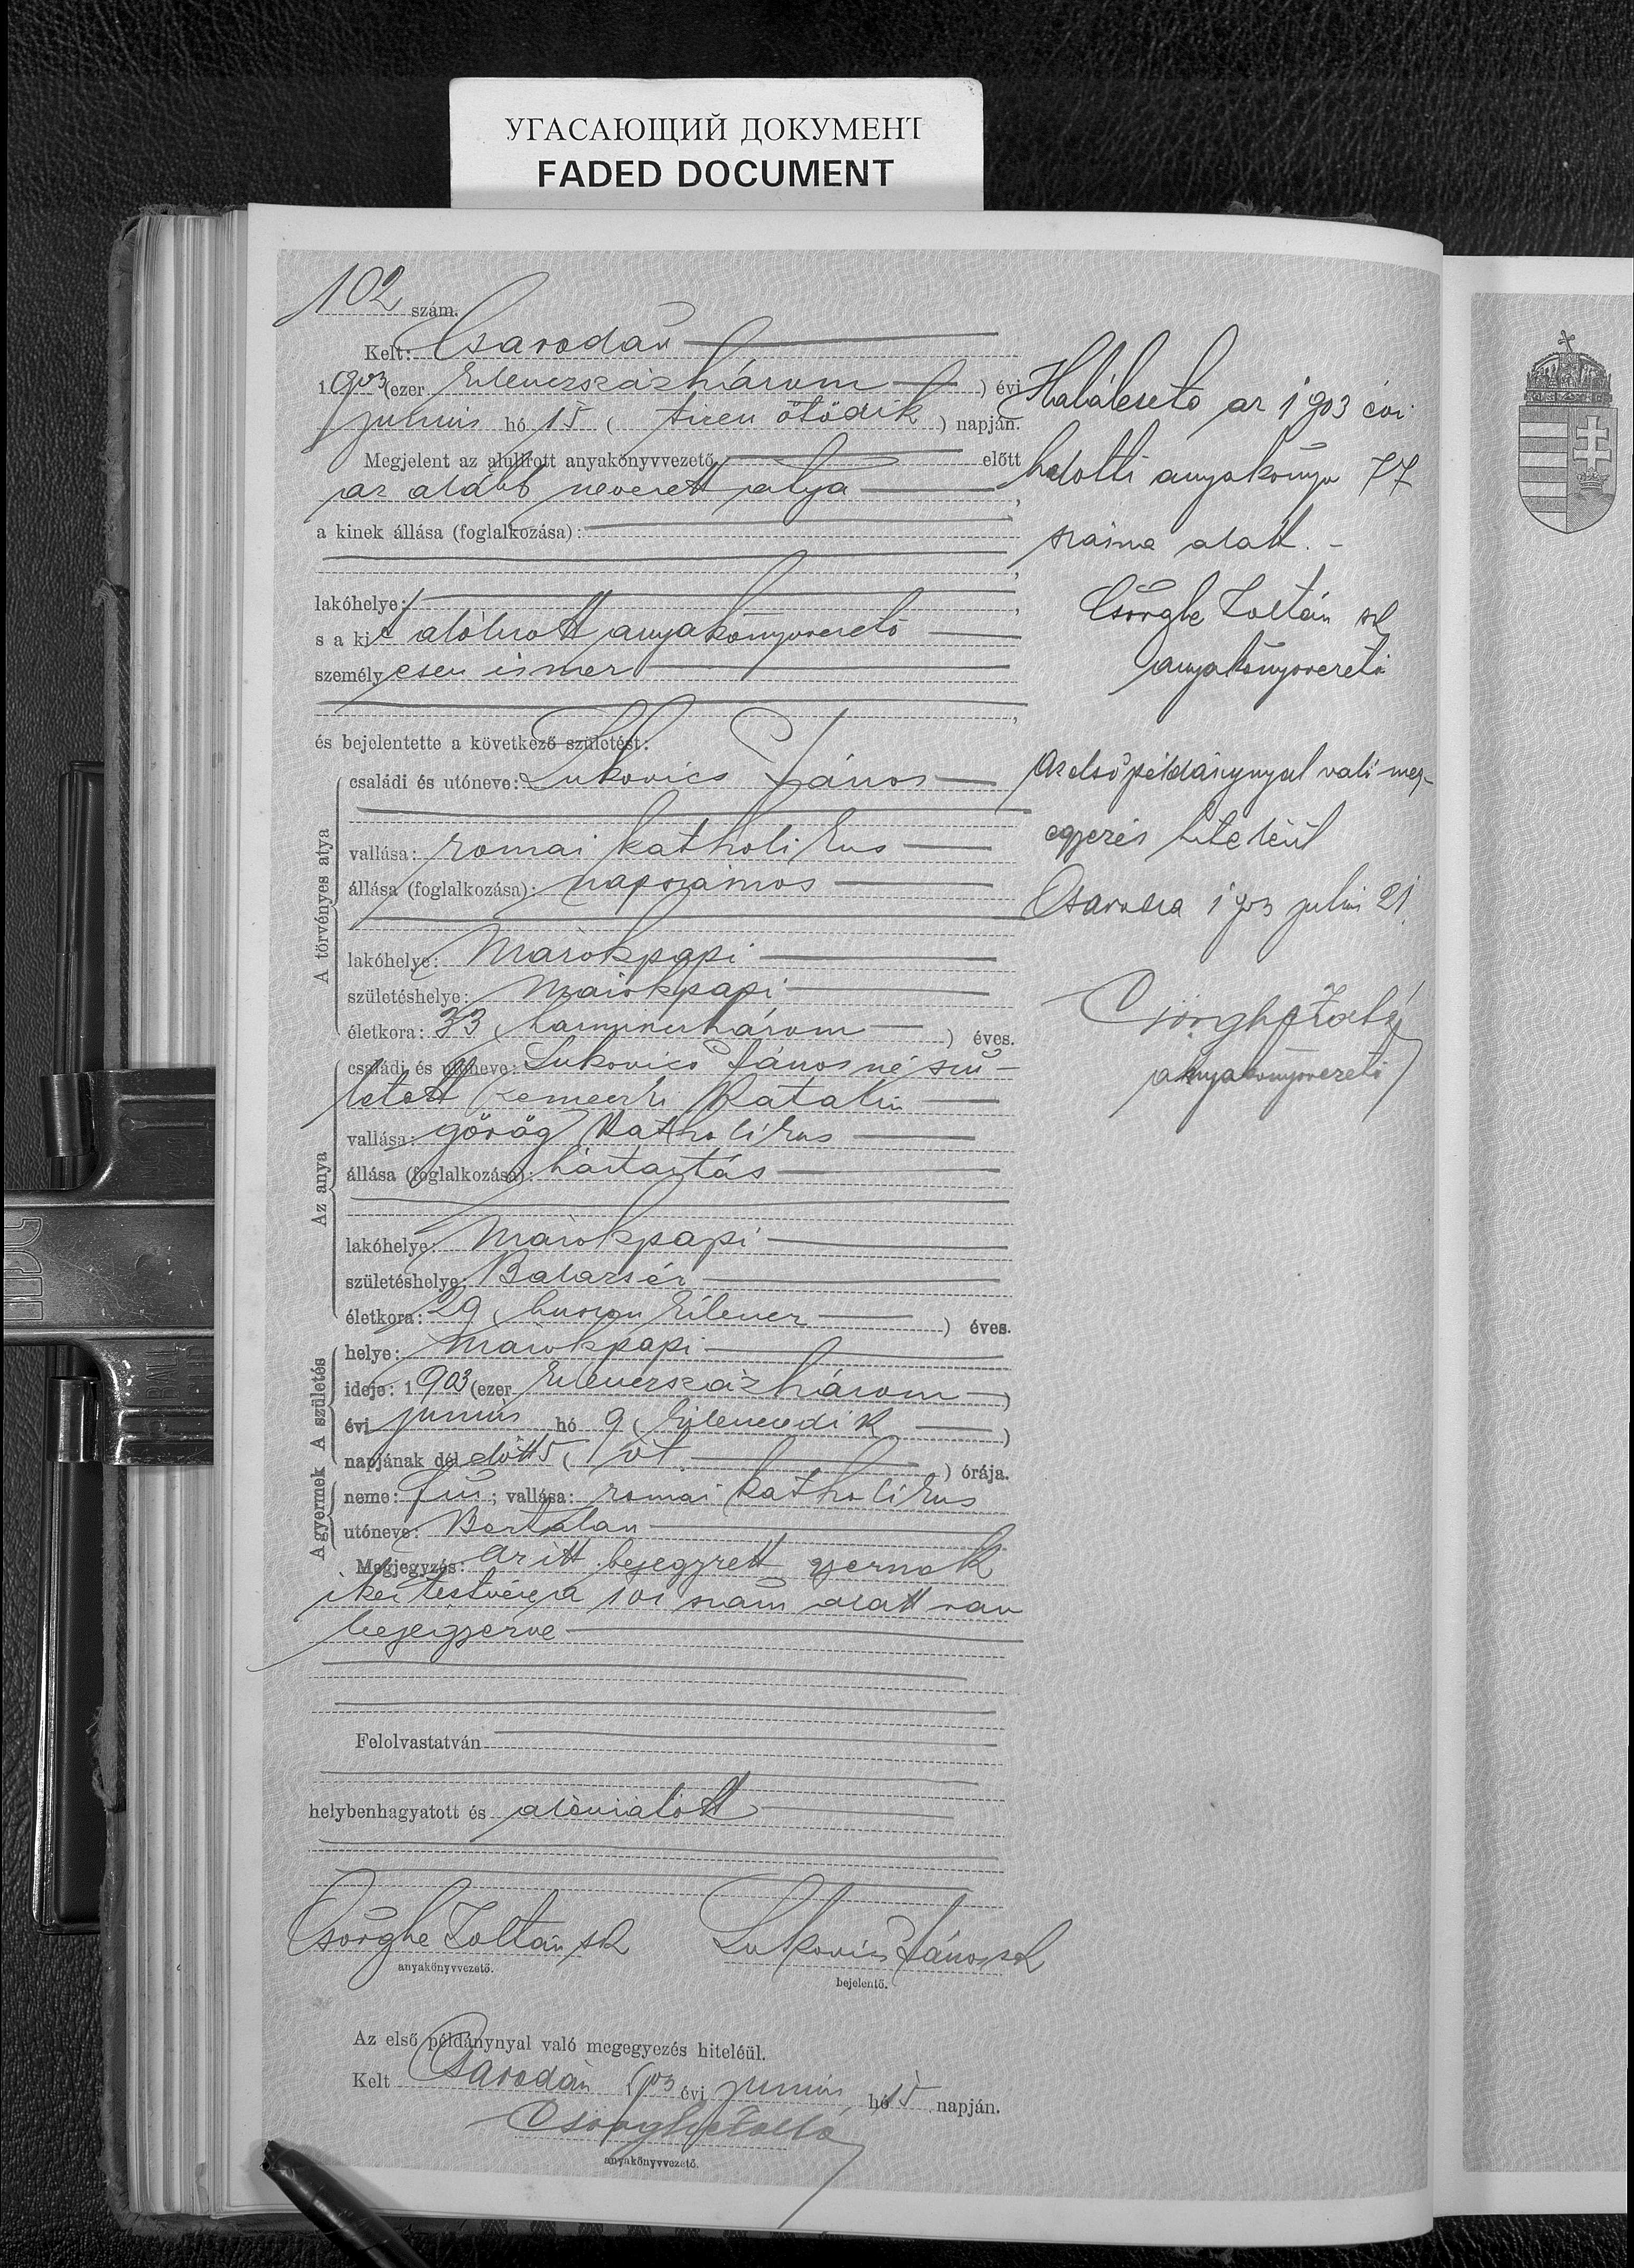 УГАСАЮЩИЙ ДОКУМЕНТ
FADED DOCUMENT
102 szám.
Kelt: Csarodán
1903 (ezer kilenczszázhárom) évi
junius hó 15 (tizen ötödik) napján.
Megjelent az alulirott anyakönyvvezető előtt
az alább nevezett atya,
a kinek állása (foglalkozása):
lakóhelye:
s a kit alólirott anyakönyvvezető
személyesen ismer
és bejelentette a következő születést:
A törvényes atya
családi és utóneve: Lukovics János
vallása: romai katholikus
állása (foglalkozása): napszámos
lakóhelye: Márokpapi
születéshelye: Márokpapi
életkora: 33 (harminczhárom) éves.
Az anya
családi és utóneve: Lukovics Jánosné szü-
letett Katalin
vallása: görög katholikus
állása (foglalkozása): háztartás
lakóhelye: Márokpapi
születéshelye: Balazsér
életkora: 29 (huszon kilencz) éves.
A születés
helye: Márokpapi
ideje: 1903 (ezer kilenczszázhárom)
évi junius hó 9 (kilenczedik)
napjának dél előtt 5 (öt) órája.
A gyermek
neme: fiu; vallása: romai katholikus
utóneve: Bertalan
Megjegyzés: Az itt bejegyzett
iker testvére a 101 szám alatt van
bejegyezve
Felolvastatván
helybenhagyatott és aláiratott
Csörghe Zoltán sk
anyakönyvvezető.
Lukovics János sk
bejelentő.
Az első példánynyal való megegyezés hiteléül.
Kelt Csarodán 1903 évi junius hó 15 napján.
Csörghe Zoltán
anyakönyvvezető.
Halálesete az 1903 évi
halotti anyakönyv 77
száma alatt. -
Csörghe Zoltán sk
anyakönyvvezető
Az első példánynyal való meg-
egyezés hiteléül
Csaroda 1903 julius 21.
Csörghe Zoltán
anyakönyvvezető